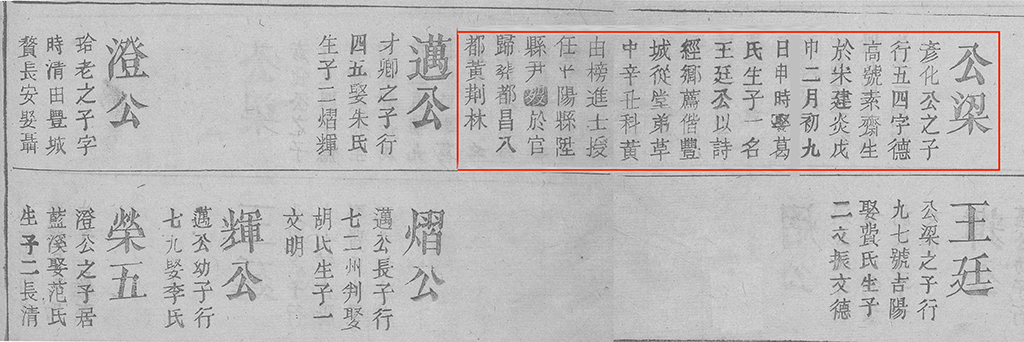 公梁
彥化公之子
行五四字德
高號素齋生
於宋建炎戊
申二月初九
日申時娶葛
氏生子一名
王廷公以詩
經鄉薦偕豐
城從堂弟草
中辛丑科黃
由榜進士授
任平陽縣陞
縣尹歿於官
歸葬都昌八
都黃荆林
邁公
才卿之子行
四五娶朱氏
生子二熠輝
澄公
珨老之子字
時清田豐城
贅長安娶聶
王廷
公梁之子行
九七號吉陽
娶費氏生子
二文振文德
熠公
邁公長子行
七二州判娶
胡氏生子一
文明
輝公
邁公幼子行
七九娶李氏
榮五
澄公之子居
藍溪娶范氏
生子二長清